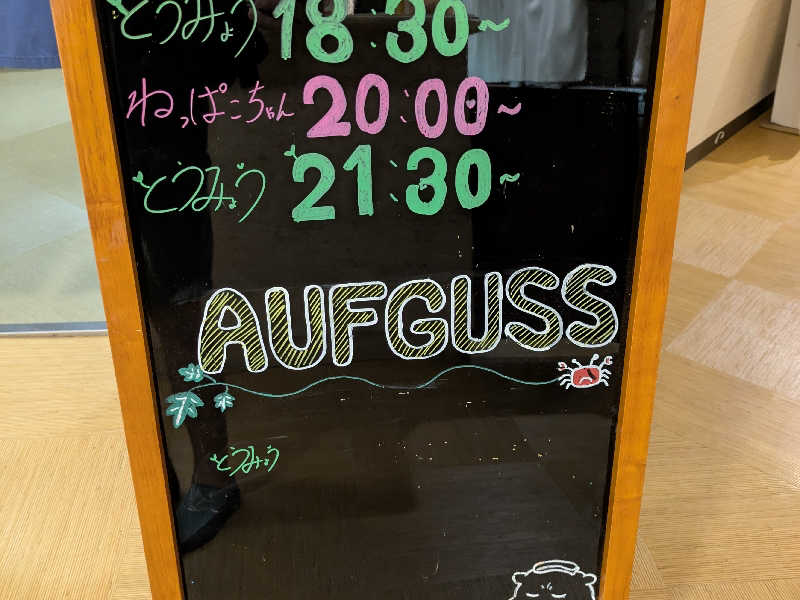 とうみょう 18:30~
ねっぱこちゃん 20:00~
とうみょう 21:30~
AUFGUSS
とうみょう